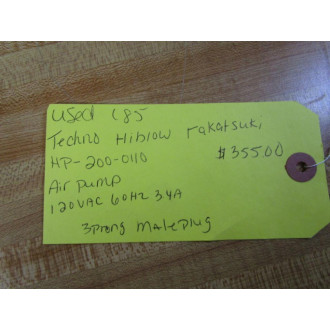 Used 185
Techno Hiblow Takatsuki
HP-200-0110
$355.00
Air pump
120VAC 60HZ 3.4A
3prong Male plug